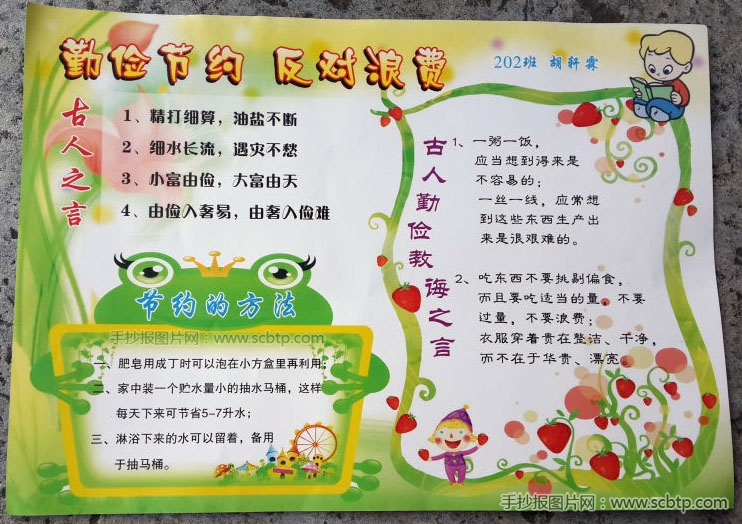 勤俭节约 反对浪费
202班 胡轩霖
古人之言
1、精打细算，油盐不断
2、细水长流，遇灾不愁
3、小富由俭，大富由天
4、由俭入奢易，由奢入俭难
节约的方法
手抄报图片网：www.scbtp.com
一、肥皂用成丁时可以泡在小方盒里再利用；
二、家中装一个贮水量小的抽水马桶，这样
每天下来可节省5-7升水；
三、淋浴下来的水可以留着，备用
于抽马桶。
古人勤俭教诲之言
1、一粥一饭，
应当想到得来是
不容易的；
一丝一线，应常想
到这些东西生产出
来是很艰难的。
2、吃东西不要挑剔偏食，
而且要吃适当的量，不要
过量，不要浪费；
衣服穿着贵在整洁、干净，
而不在于华贵、漂亮。
手抄报图片网：www.scbtp.com